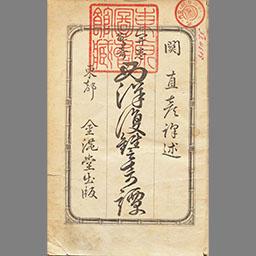 関直彦譯述
西洋復讐奇譚
東都 金港堂出版
東京
圖書
館藏